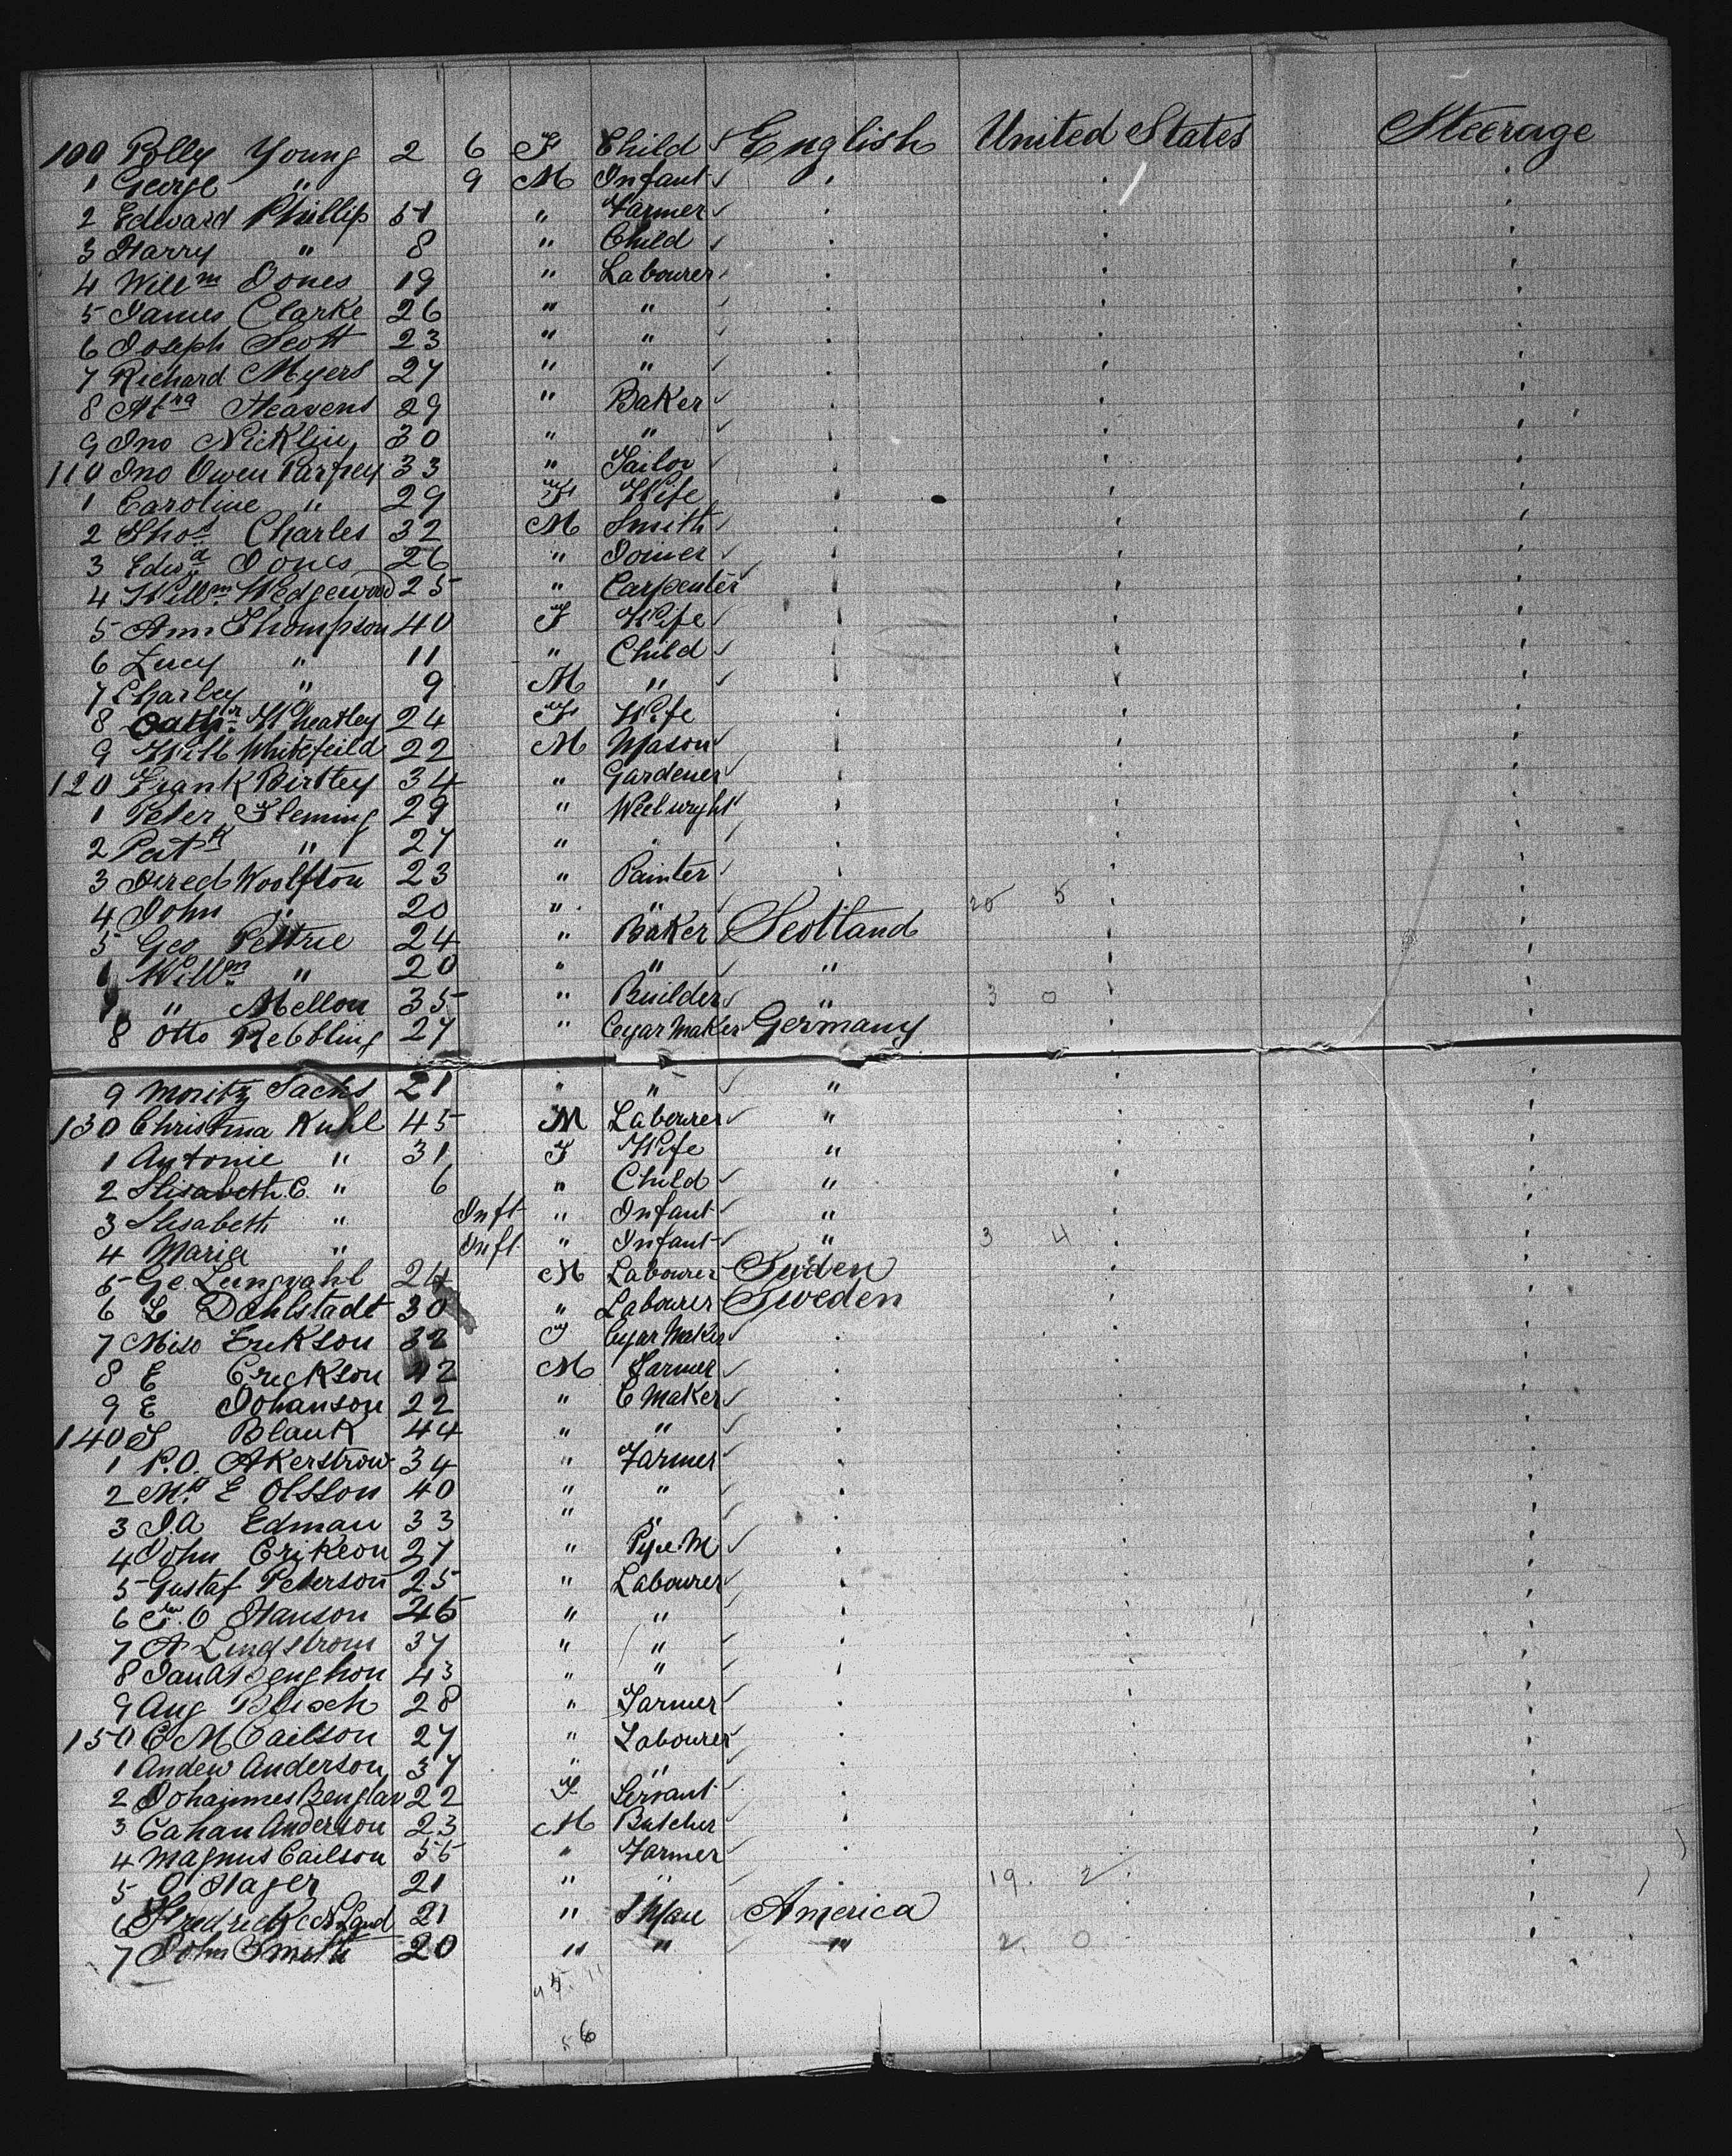 100 Polly Young 2 6 F Child ✓ English United States Steerage
1 George " 9 M Infant ✓
2 Edward Phillip 51 " Farmer ✓
3 Harry " 8 " Child ✓
4 Willm Jones 19 " Labourer
5 James Clarke 26 " "
6 Joseph Scott 23 " " ✓
7 Richard Myers 27 " " ✓
8 Heavens 29 " Baker ✓
9 Jno Nicklin 30 " " ✓
110 Jno Owen Parfrey 33 " Tailor ✓
1 Caroline " 29 F Wife
2 Thos Charles 32 M Smith ✓
3 Edwd Jones 26 " Joiner ✓
4 Willm Wedgewood 25 " Carpenter
5 Ann Thompson 40 F Wife ✓
6 Lucy " 11 " Child ✓
7 Charley " 9 M " ✓
8 Wheatley 24 F Wife
9 Will Whitefeild 22 M Mason ✓
120 Frank Birtley 34 " Gardener ✓
1 Peter Fleming 29 " Weelwryht
2 Patk " 27 " "
3 Woolfton 23 " Painter ✓
4 John " 20 " " 20 5
5 Geo Pettrie 24 " Baker Scotland
6 Willm " 20 " " ✓ "
" Mellon 35 " Builder ✓ " 3 0
8 Otto Rebbling 27 " Cegar Maker Germany
9 Moritz Sachs 21 " " ✓ "
130 Christina Kuhl 45 M Labourer ✓ "
1 Antonie " 31 F Wife "
2 Elisabeth C. " 6 " Child ✓ "
3 Elisabeth " Inft " Infant "
4 Maria " Inft " Infant " 3 4
5 Ge. Lungvahl 24 M Labourer Sweden
6 L Dahlstadt 30 " Labourer Sweden
7 Miss Erikson 32 F Cegar Maker
8 E Erickson 42 M Farmer ✓
9 E Johanson 22 " C Maker ✓
140 S Blank 44 " " ✓
1 P.O. Akerstrow 34 " Farmer ✓
2 E Olsson 40 " " ✓
3 J.A Edman 33 " " ✓
4 John Erikeon 27 " Pipe.M ✓
5 Gustaf Peterson 25 " Labourer ✓
6 O Hanson 46 " "
7 A Lindstrom 37 " " ✓
8 43 " " ✓
9 Aug 28 " Farmer ✓
150 C M Cailson 27 " Labourer ✓
1 Andew Anderson 37 " " ✓
2 Johannes Benglav 22 F Servant ✓
3 Cahan Anderson 23 M Butcher ✓
4 Magnus Cailson 55 " Farmer ✓
5 O Hager 21 " " ✓ 19. 2
6 Fredrick 21 " America
7 John Smith 20 " " ✓ " 2. 0
56